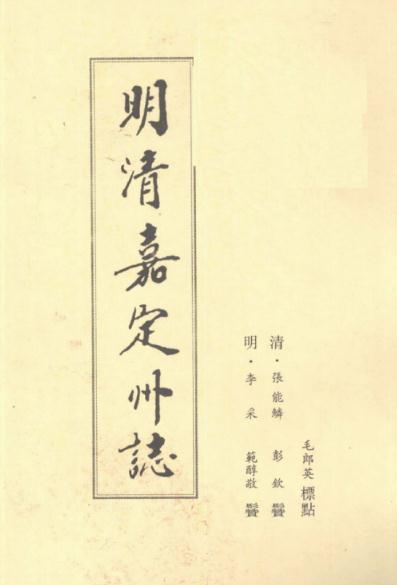 毛郎英 標點
清·張能鱗 彭欽
明·李采 範醇敬
明清嘉定州誌